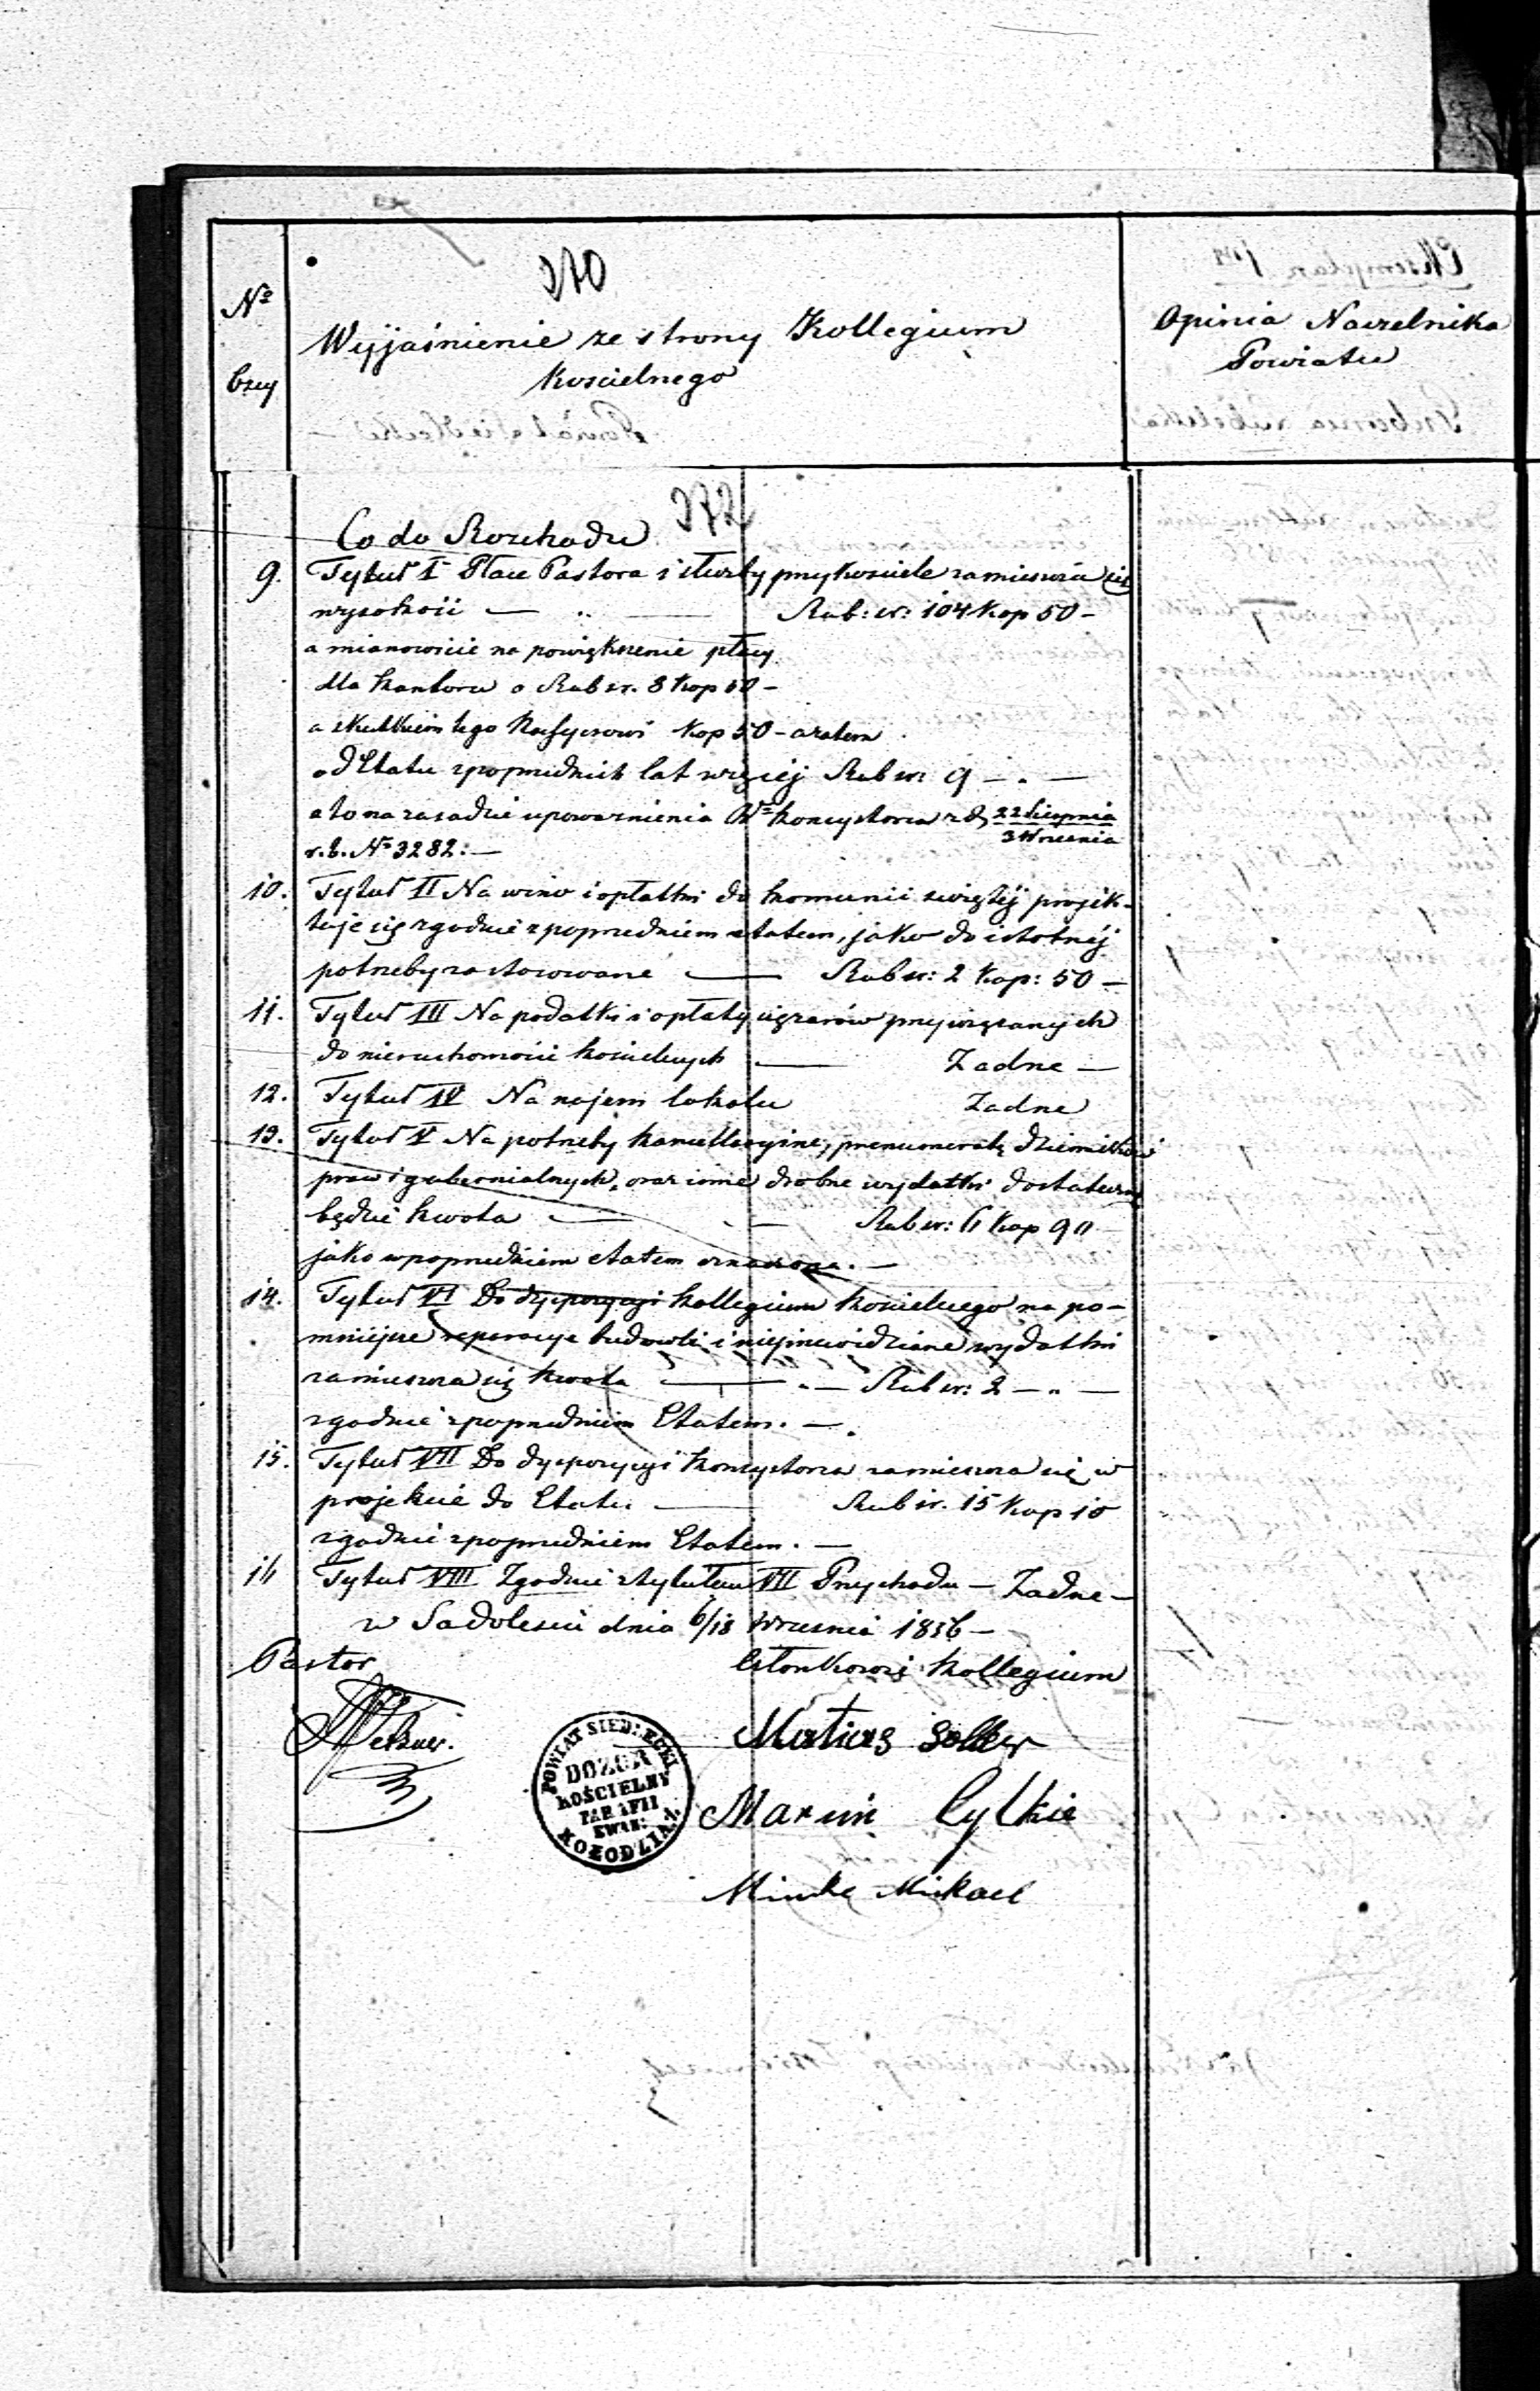 370
Nº
bży
Wyjaśnienie ze strony Kollegium
Kościelnego
Opinia Naczelnika
Powiatu
372
Co do Rozchodu
9. Tytuł I Płace Pastora i służby przy kościele zamieszcza się
wysokości — „ — Rub: sr: 104 kop 50 –
a mianowicie na powiększenie płacy
dla Kantora o Rub sr. 8 kop 50 –
a skutkiem tego Kassyerowi kop 50 – a zatem
od Etatu z poprzednich lat więcej Rub sr: 9 – „ –
a to na zasadzie upoważnienia Konsystorza z d. 22 Sierpnia
3 Września
r. b. Nº 3282: —
10. Tytuł II Na wino i opłatki do Kommunii świętéj projek-
tuje się zgodnie z poprzedniem etatem, jako do istotnéj
potrzeby zastosowane — Rub sr: 2 kop: 50 –
11. Tytuł III Na podatki i opłaty ciężarów przywiązanych
do nieruchomości kościelnych — Żadne –
12. Tytuł IV Na najem lokalu Żadne
13. Tytuł V Na potrzeby kancellaryine, prenumeratę dzienników
praw i gubernialnych, oraz inne drobne wydatki dostateczną
będzie kwota — „ — Rub sr: 6 kop 90
jako w poprzedniem etatem oznaczona. —
14. Tytuł VI Do dyspozycyi Kollegium Kościelnego na po-
mniejsze reperacye budowli i nieprzewidziane wydatki
zamieszcza się kwota — „ — Rub sr: 2 — „ —
zgodnie z poprzedniem Etatem. —
15. Tytuł VII Do dyspozycyi Konsystorza zamieszcza się w
projekcie do Etatu — Rub sr. 15 kop 10
zgodnie z poprzedniem Etatem. —
16 Tytuł VIII Zgodnie z tytułem VII Przychodu — Żadne –
w Sadoleściu dnia 6/18 Września 1856 —
Pastor
Członkowie Kollegium
Matias
POWIAT SIEDLECKI
DOZÓR
KOŚCIELNY
PARAFII
EWAN:
Marcin
Mickael